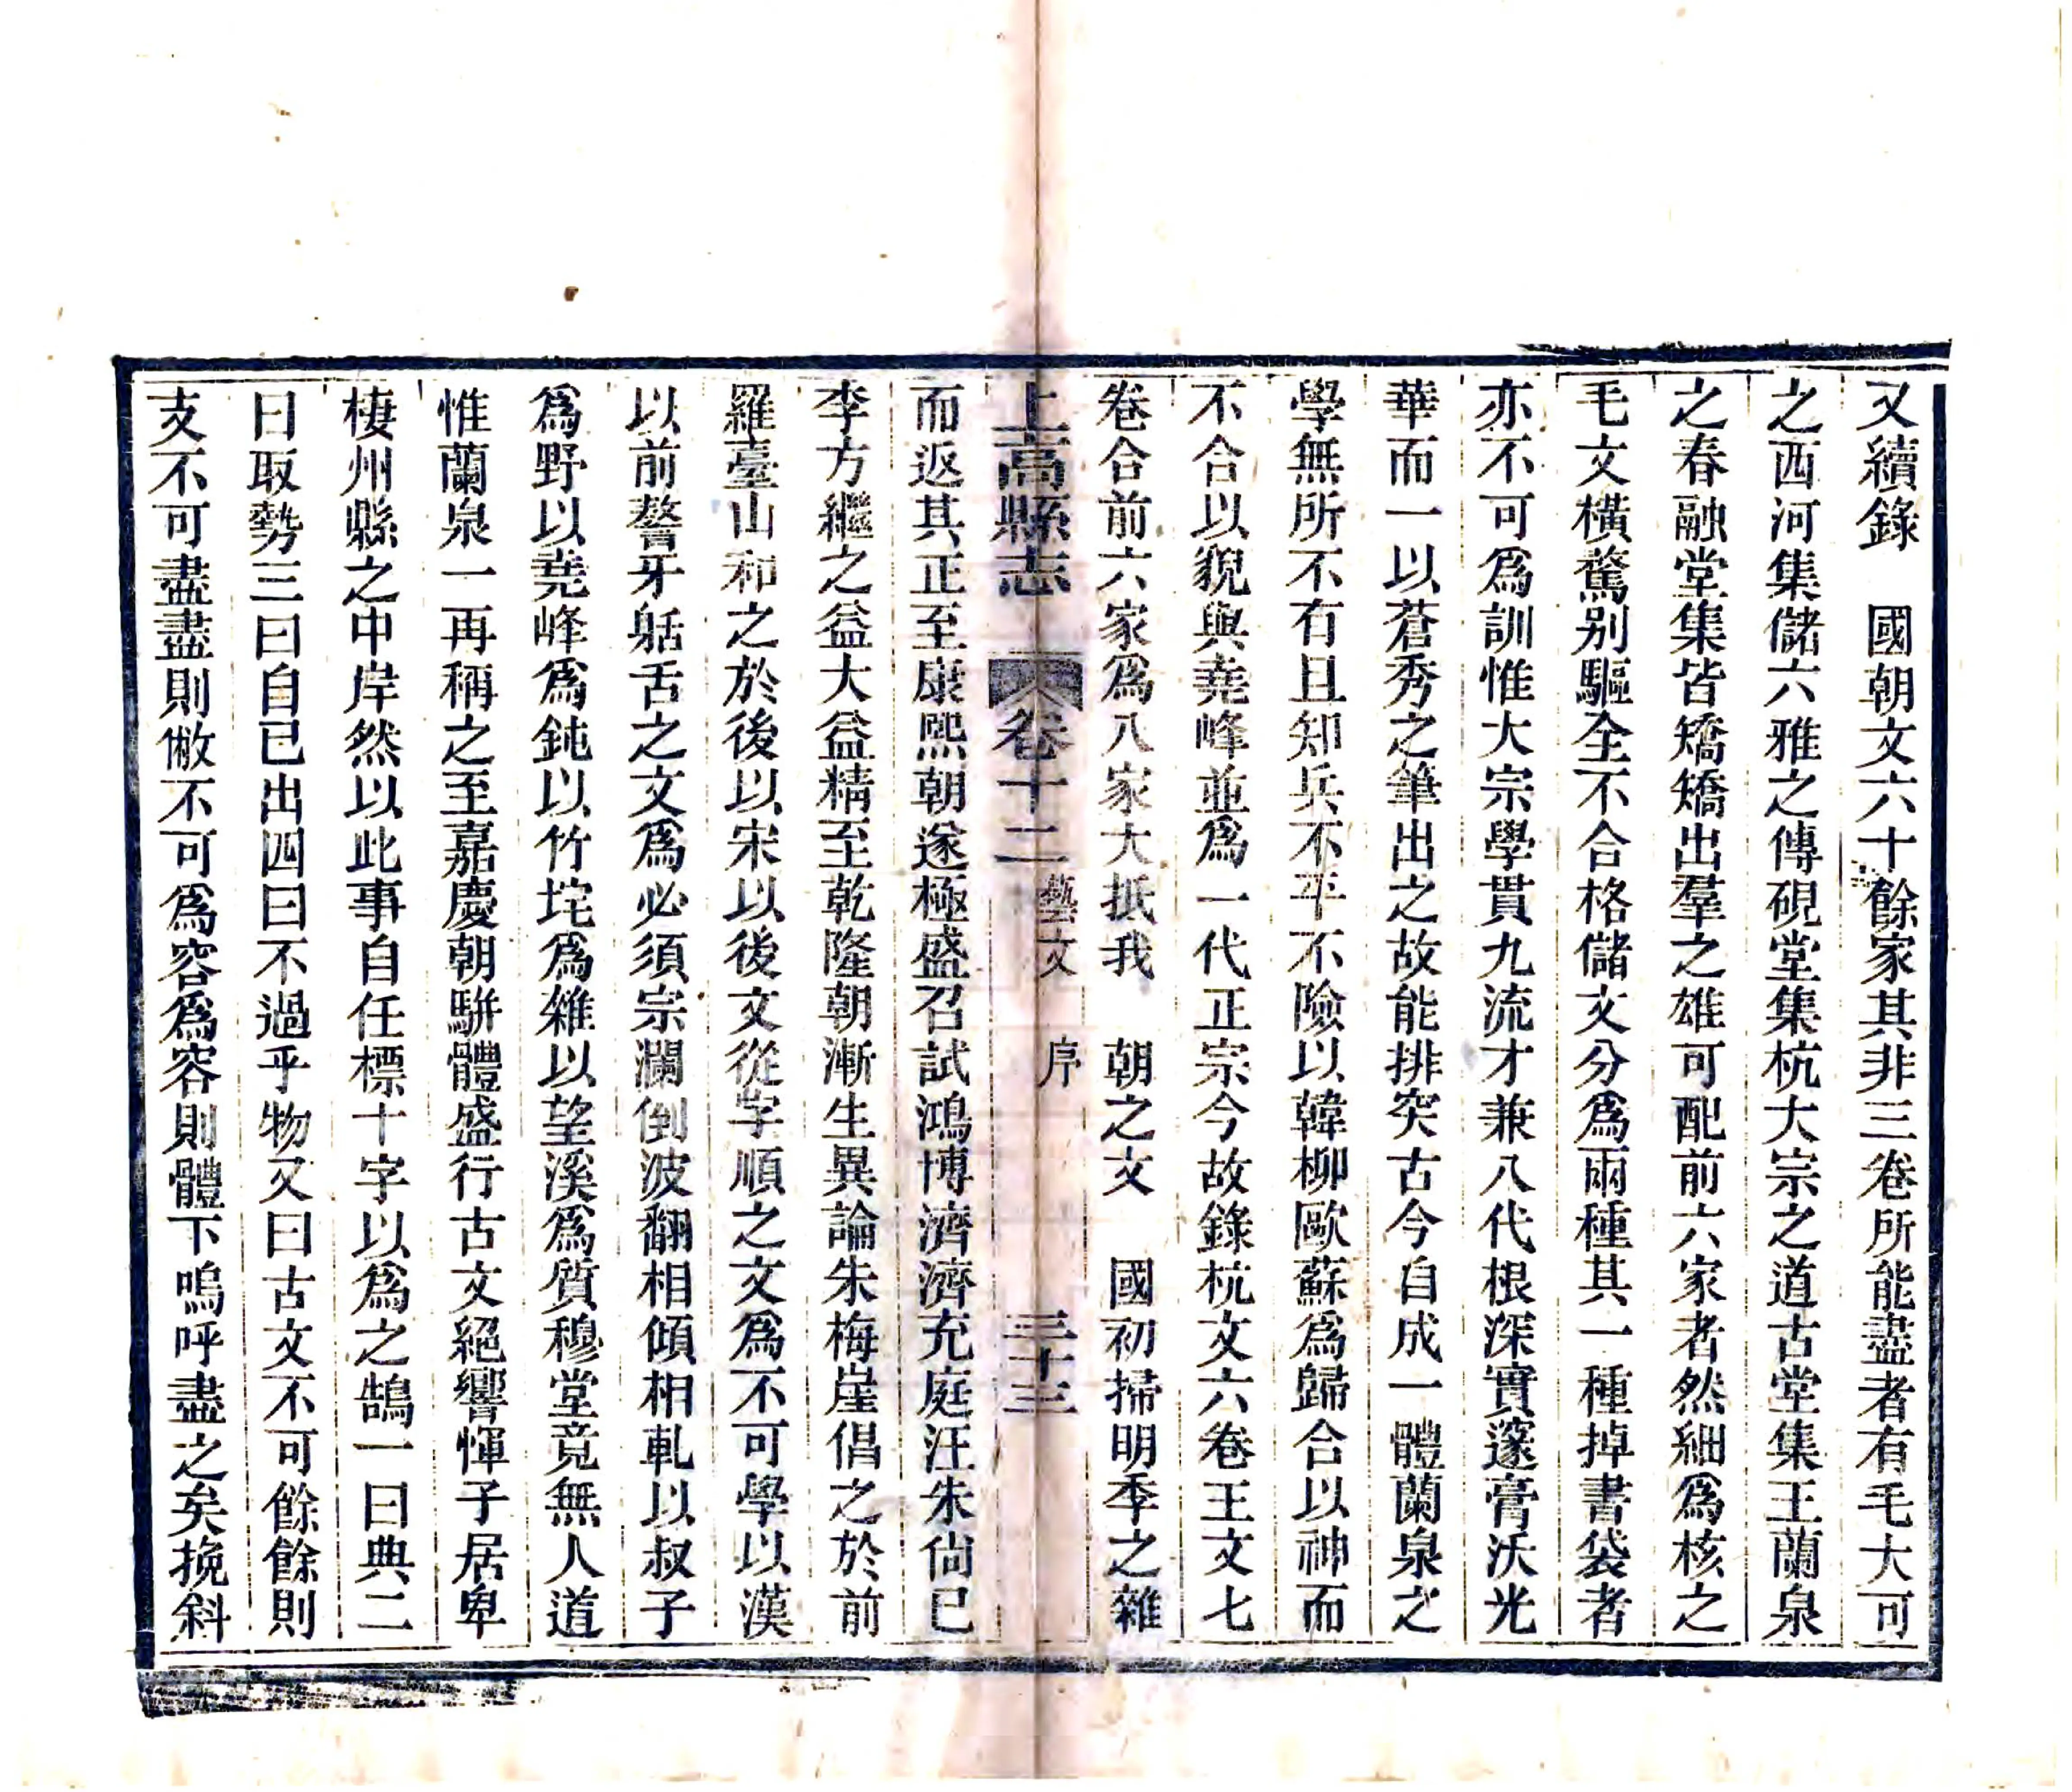 又續錄　國朝文六十餘家其非三卷所能盡者有毛大可
之西河集儲六雅之傳硯堂集杭大宗之道古堂集王蘭泉
之春融堂集皆矯矯出羣之雄可配前六家者然細爲核之
毛文橫騖别驅全不合格儲文分爲兩種其一種掉書袋者
亦不可爲訓惟大宗學貫九流才兼八代根深實邃膏沃光
華而一以蒼秀之筆出之故能排突古今自成一體蘭泉之
學無所不有且知兵不平不險以韓柳歐蘇爲歸合以神而
不合以貌與堯峰並爲一代正宗今故錄杭文六卷王文七
卷合前六家爲八家大抵我　朝之文　國初掃明季之雜
上高縣志　卷十二　藝文　序　三十三
而返其正至康熙朝遂極盛召試鴻博濟濟充庭汪朱尙已
李方繼之益大益精至乾隆朝漸生異論朱梅崖倡之於前
羅臺山和之於後以宋以後文從字順之文爲不可學以漢
以前聱牙䑛舌之文爲必須宗瀾倒波翻相傾相軋以叔子
爲野以堯峰爲鈍以竹垞爲雜以望溪爲質穆堂竟無人道
惟蘭泉一再稱之至嘉慶朝駢體盛行古文絕響惲子居卑
棲州縣之中岸然以此事自任標十字以爲之鵠一曰典二
曰取勢三曰自已出四曰不過乎物又曰古文不可餘餘則
支不可盡盡則敝不可爲容爲容則體下嗚呼盡之矣挽斜